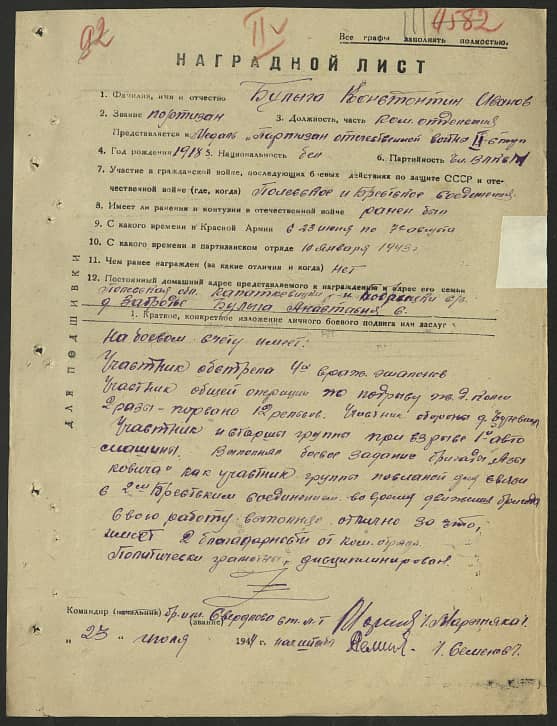 92
II v
4582
Все графы заполнять полностью.
НАГРАДНОЙ ЛИСТ
1. Фамилия, имя и отчество Булыга Константин Иванов
2. Звание партизан 3. Должность, часть ком. отделения
Представляется к Медаль "Партизан отечественной войны II степ
4. Год рождения 1918 5. Национальность бел 6. Партийность чл. ВЛКСМ
7. Участие в гражданской войне, последующих боевых действиях по защите СССР и оте-
чественной войне (где, когда) Полесское и Брестское соединения.
8. Имеет ли ранения и контузии в отечественной войне ранен был
9. С какого времени в Красной Армии с 23 июня по 7е августа
10. С какого времени в партизанском отряде 10 января 1943 г
11. Чем ранее награжден (за какие отличия и когда) нет
12. Постоянный домашний адрес представляемого к награждению и адрес его семьи
Полесская обл. Копаткевицкий р-н
д Булыга Анастасия
ДЛЯ ПОДШИВКИ
1. Краткое, конкретное изложение личного боевого подвига или заслуг
На боевом счету имеет:
Участник обстрела 4х враж. эшалонов
Участник общей операции по подрыву ж.д. полотна
2 разы - порвано рельсов. Участник обороны д.
Участник и старшы группы при взрыве 1й авто
машины. Выполняя боевое задание бригады "Лазы
ковича" как участник группы посланой для связи
с 2ым Брестским соединением во время движения бригады
Свою работу выполнял отлично за это,
имеет 2 благодарности от ком. отряда.
Политически грамотны, дисциплинирован
Командир (начальник) бр-ды Свердлова ст. л-т /Маринякин/
(звание)
" 23 " июля 1944 г. нач штаба /Семенов/